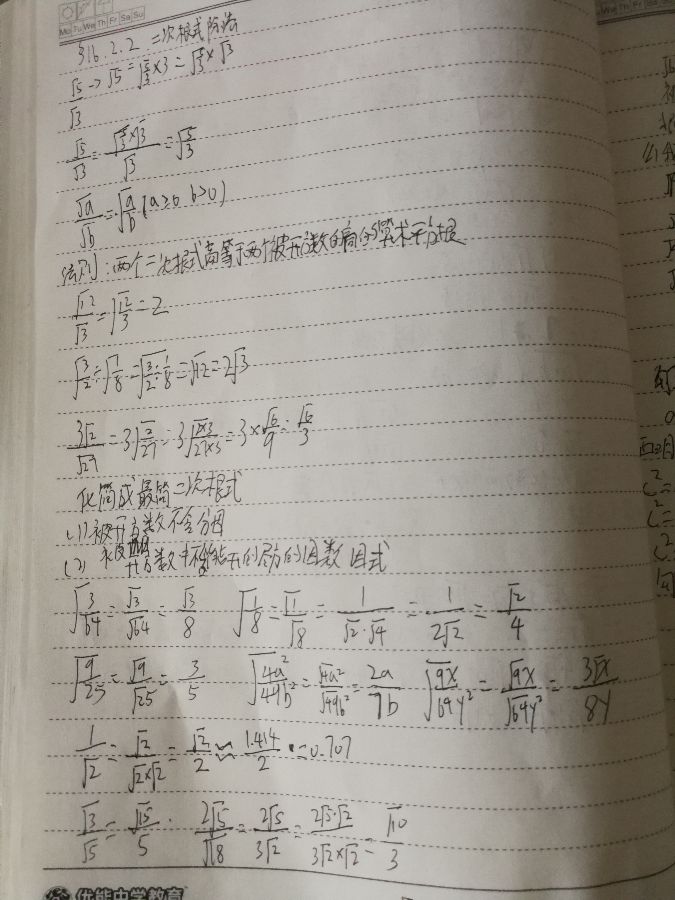 Mo Tu We Th Fr Sa Su
§16.2.2 二次根式除法
√5/√3 → √5 = √(5/3×3) = √(5/3) × √3
√5/√3 = (√(5/3)×√3)/√3 = √(5/3)
√a/√b = √(a/b) (a≥0 b>0)
法则:两个二次根式商等于两个被开方数的商的算术平方根
√12/√3 = √(12/3) = 2
√(3/2) ÷ √(1/8) = √(3/2÷1/8) = √12 = 2√3
3√2/√27 = 3√(2/27) = 3√(2×3/27×3) = 3×√6/9 = √6/3
化简成最简二次根式
(1) 被开方数不含分母
(2) 被开方数中不含能开的尽方的因数 因式
√(3/64) = √3/√64 = √3/8 √(1/8) = √1/√8 = 1/(√2·√4) = 1/(2√2) = √2/4
√(9/25) = √9/√25 = 3/5 √(4a²/49b²) = √4a²/√49b² = 2a/7b √(9x/64y²) = √9x/√64y² = 3√x/8y
1/√2 = √2/(√2×√2) = √2/2 ≈ 1.414/2 = 0.707
√3/√5 = √15/5 . 2√5/√18 = 2√5/3√2 = (2√5·√2)/(3√2×√2) = √10/3
优能中学教育